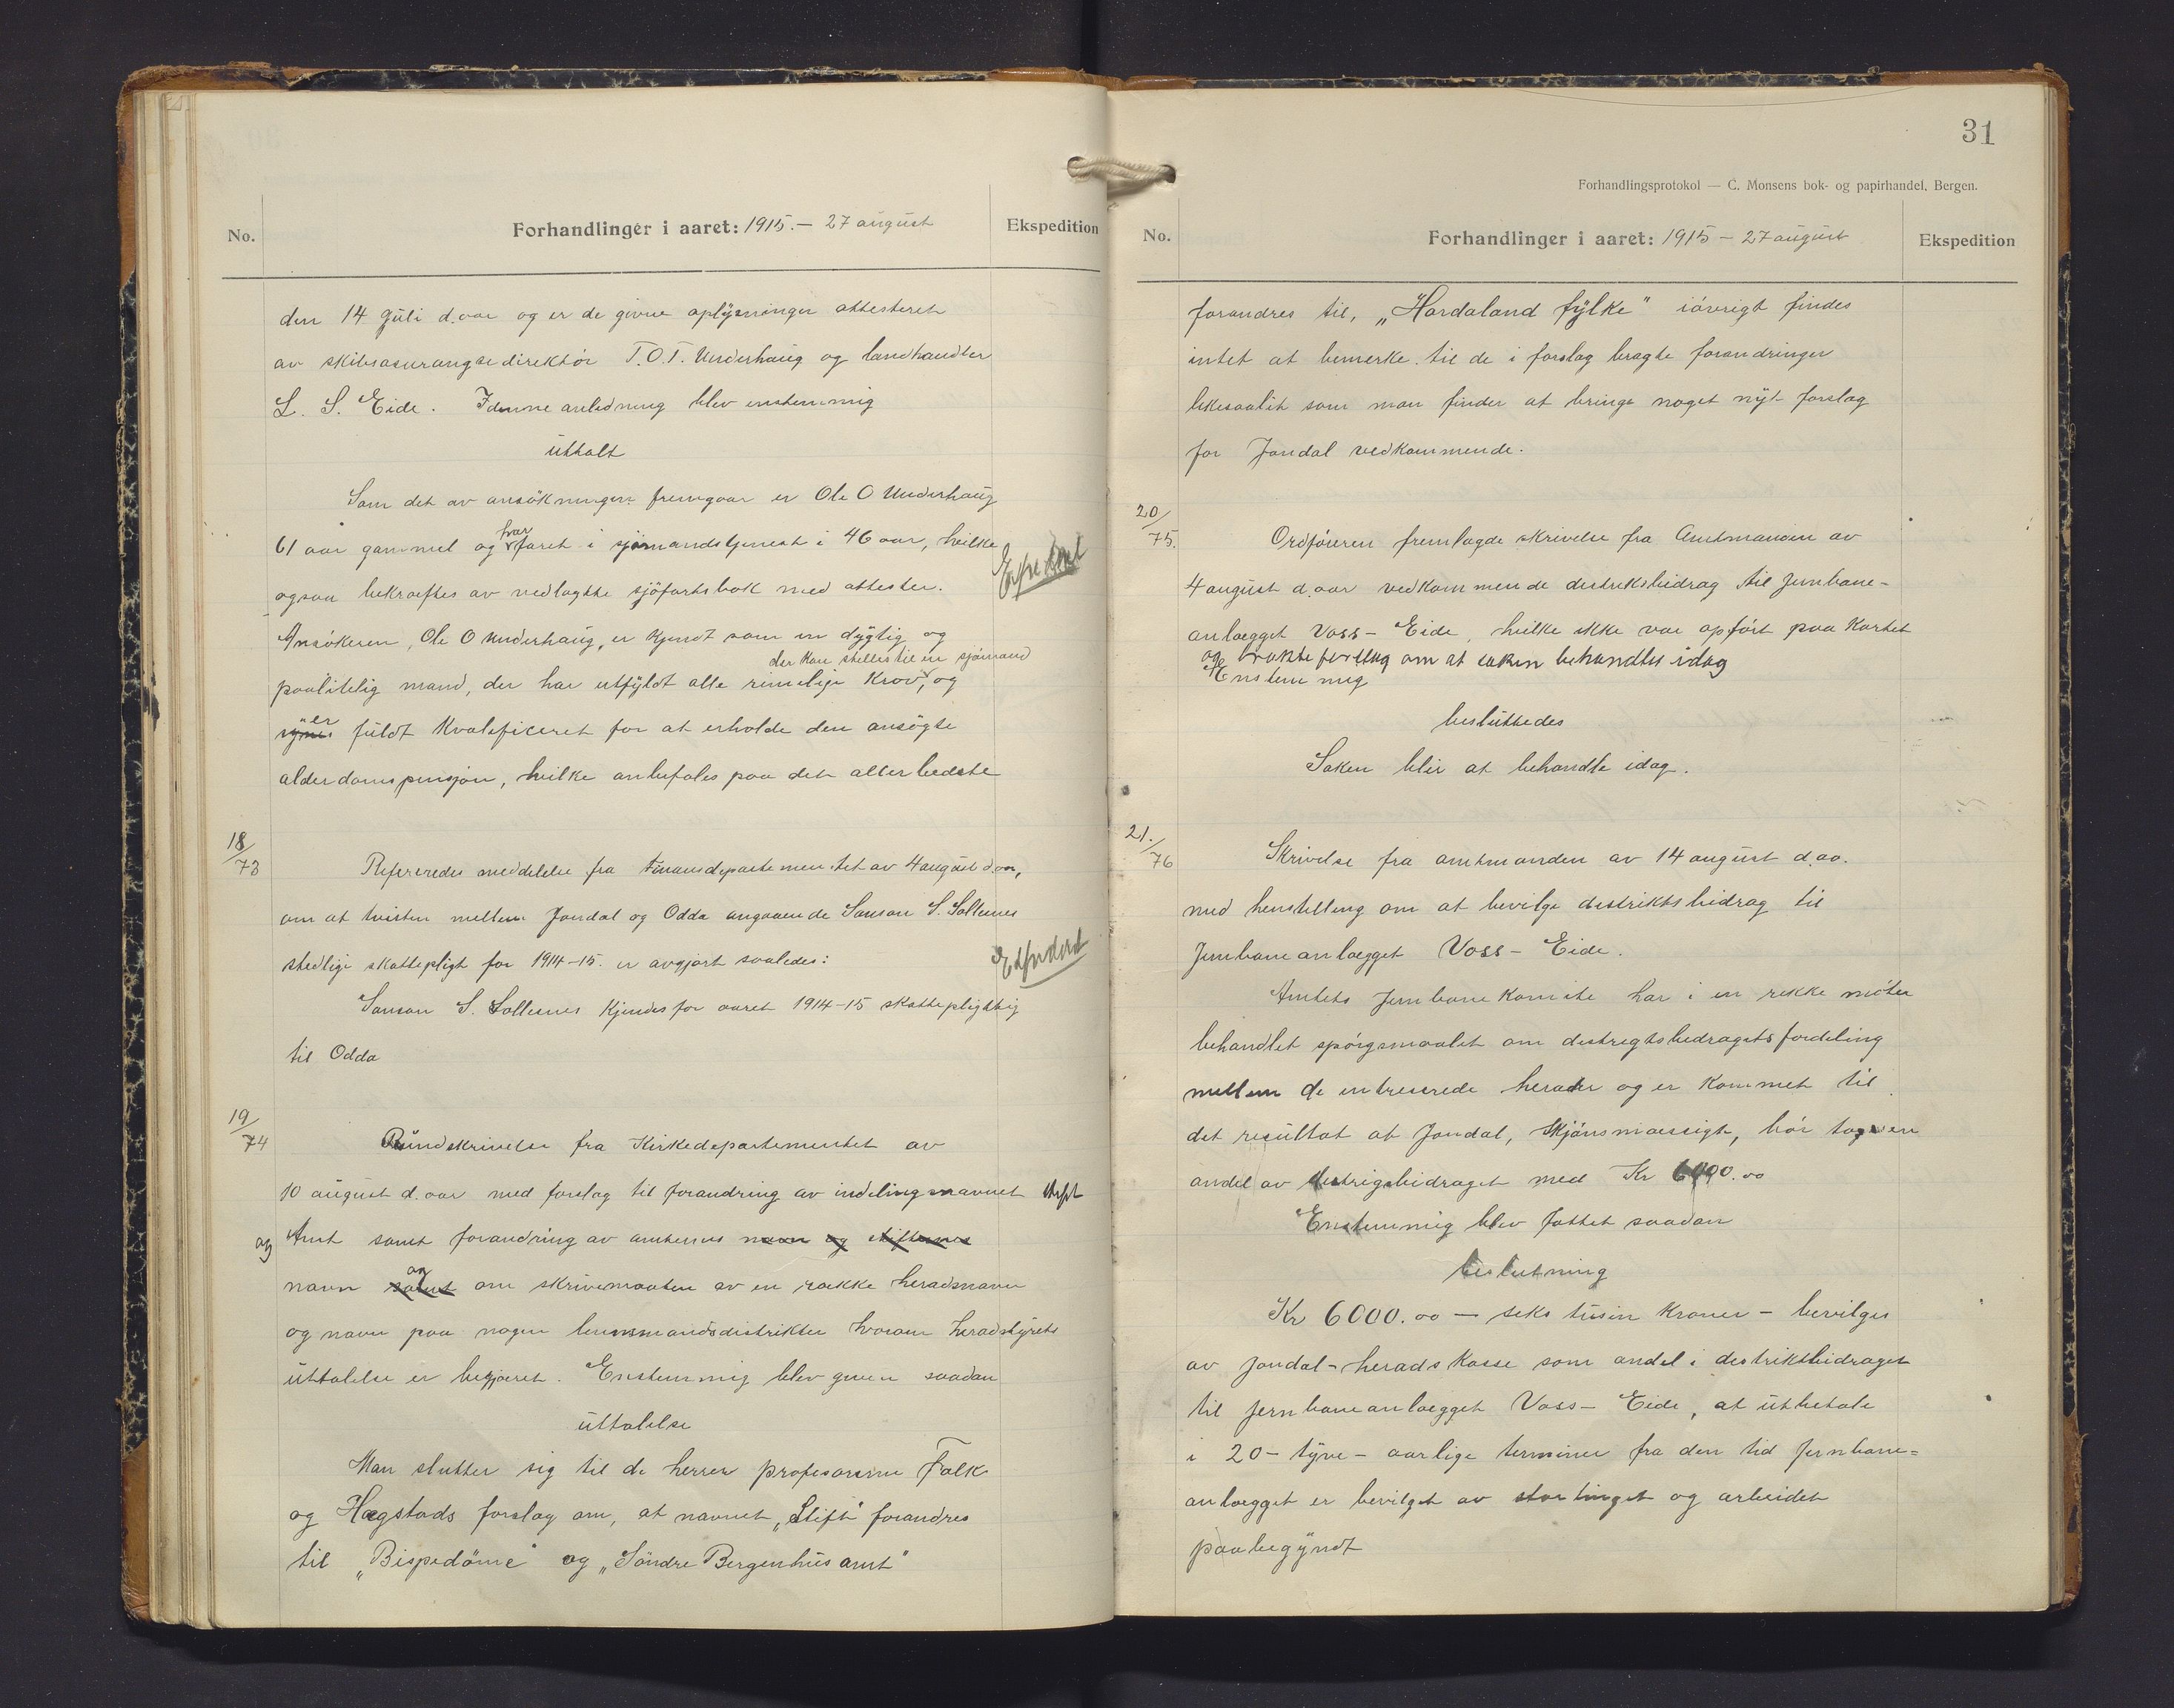 No.
Forhandlinger i aaret: 1915. — 27 august
Ekspedition
den 14 Juli d. aar og er de givne oplysninger attesteret
av skibsasurangsedirektör T. O. T. Underhaug og landhandler
L. S. Eide. I denne anledning blev enstemmig
uttalt
Som det av ansökningen fremgaar er Ole O Underhaug
61 aar gammel og har faret i sjömandstjenest i 46 aar, hvilke
ogsaa bekræftes av vedlagte sjöfartsbok med attester.
Ansökeren, Ole O Underhaug, er kjendt som en dygtig og
der kan stelles til en sjömand
paalitelig mand, der har utfyldt alle rimelige krav, og
er
synes fuldt kvalificeret for at erholde den ansögte
alderdomspensjon, hvilke anbefales paa det allerbedste
18/73
Refereredes meddelelse fra Finansdepartementet av 4 august d. aar,
om at tvisten mellem Jondal og Odda angaaende Samson S. Sollesnes
stedlige skattepligt for 1914-15. er avgjort saaledes:
Ekspedert
Samson S. Sollesnes kjendes for aaret 1914-15 skattepligttig
til Odda
19/74
Rundskrivelse fra Kirkedepartementet av
10 august d. aar med forslag til forandring av indelingsnavnet
og Amt samt forandring av amternes navn og stifternes
navn samt og om skrivemaaten av en række heradsnavn
og navn paa nogen lensmandsdistrikter hvorom heradstyrets
uttalelse er begjæret. Enstemmig blev given saadan
uttalelse
Man slutter sig til de herrer profesorerne Falk
og Hægstads forslag om, at navnet „Stift" forandres
til „Bispedöme" og „Söndre Bergenhus amt"
31
Forhandlingsprotokol — C. Monsens bok- og papirhandel, Bergen.
No.
Forhandlinger i aaret: 1915 — 27 august
Ekspedition
forandres til, „Hordaland fylke" iövrigt findes
intet at bemerke til de i forslag bragte forandringer
likesaalit som man finder at bringe noget nyt forslag
for Jondal vedkommende.
20/75.
Ordföreren fremlagde skrivelse fra Amtmanden av
4 august d. aar vedkommende destriksbidrag til Jernbane-
anlægget Voss - Eide, hvilke ikke var opfört paa Kartet
og brakte forslag om at saken behandles idag
Enstemmig
besluttedes
Saken blir at behandle idag.
21./76
Skrivelse fra amtmanden av 14 august d. aa.
med henstilling om at bevilge destriktsbidrag til
Jernbaneanlægget Voss - Eide.
Amtets Jernbanekomite har i en rekke möter
behandlet spörgsmaalet om destregtsbedragets fordeling
mellem de entreserede herader og er kommet til
det resultat at Jondal, skjönsmæssigt, bör ta en
andel av destrigsbidraget med Kr 6000.00
Enstemmig blev fattet saadan
beslutning
Kr 6000.00 — seks tusin kroner — bevilges
av Jondal-herads kasse som andel i destriktsbidraget
til jernbaneanlægget Voss - Eide, at utbetale
i 20 - tyve - aarlige terminer fra den tid Jernbane=
anlægget er bevilget av stortinget og arbeidet
paabegyndt